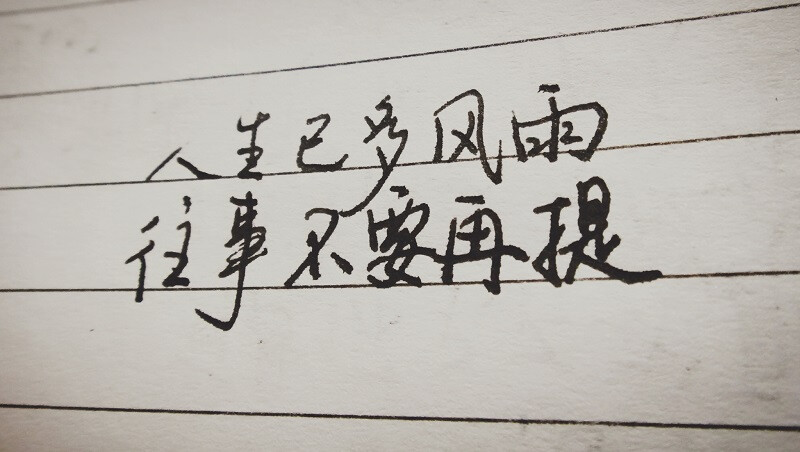 人生已多风雨
往事不要再提